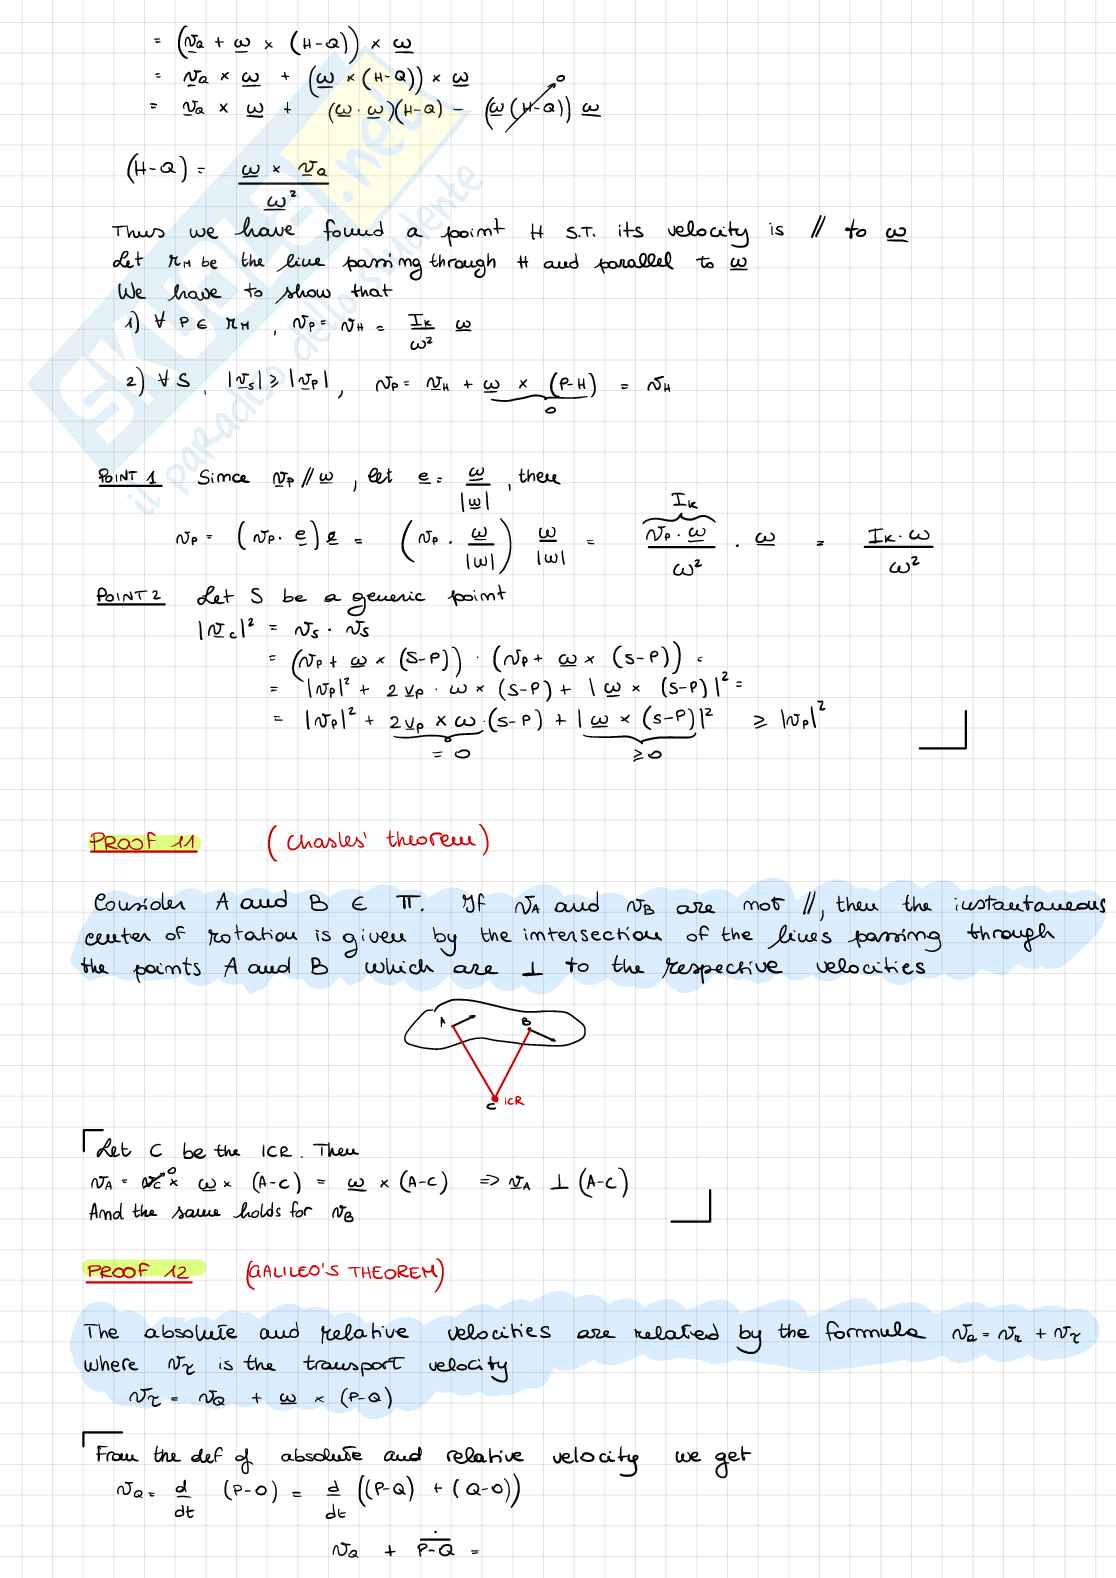 = (v_Q + ω × (H-Q)) × ω
= v_Q × ω + (ω × (H-Q)) × ω
= v_Q × ω + (ω · ω)(H-Q) - (ω (H-Q)) ω → 0
(H-Q) = ω × v_Q / ω²
Thus we have found a point H S.T. its velocity is // to ω
Let r_H be the line passing through H and parallel to ω
We have to show that
1) ∀ P ∈ r_H , v_P = v_H = I_K / ω² ω
2) ∀ S , |v_S| ≥ |v_P| , v_P = v_H + ω × (P-H) = v_H
0
POINT 1 Since v_P // ω , let e = ω / |ω| , then
v_P = (v_P · e) e = (v_P · ω / |ω|) ω / |ω| = v_P · ω / ω² · ω = I_K · ω / ω²
I_K
POINT 2 Let S be a generic point
|v_C|² = v_S · v_S
= (v_P + ω × (S-P)) · (v_P + ω × (S-P)) =
= |v_P|² + 2 v_P · ω × (S-P) + | ω × (S-P)|² =
= |v_P|² + 2 v_P × ω · (S-P) + | ω × (S-P)|² ≥ |v_P|²
= 0 ≥ 0
PROOF 11 (Chasles' theorem)
Consider A and B ∈ π. If v_A and v_B are not //, then the instantaneous
center of rotation is given by the intersection of the lines passing through
the points A and B which are ⊥ to the respective velocities
A B
C ICR
Let C be the ICR. Then
v_A = v_C 0 × ω × (A-C) = ω × (A-C) => v_A ⊥ (A-C)
And the same holds for v_B
PROOF 12 (GALILEO'S THEOREM)
The absolute and relative velocities are related by the formula v_a = v_r + v_τ
where v_τ is the transport velocity
v_τ = v_Q + ω × (P-Q)
From the def of absolute and relative velocity we get
v_a = d/dt (P-O) = d/dt ((P-Q) + (Q-O))
v_Q + P-Q =
SKUOLA.net
il paradiso dello studente